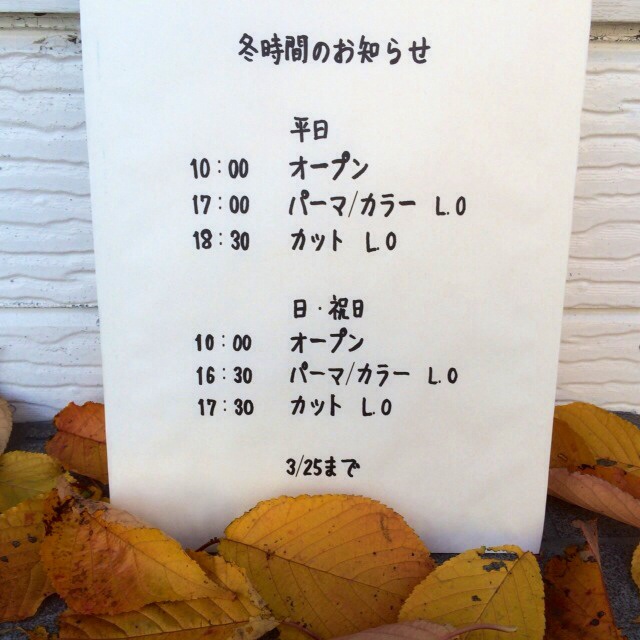 冬時間のお知らせ
平日
10：00 オープン
17：00 パーマ/カラー L.O
18：30 カット L.O
日・祝日
10：00 オープン
16：30 パーマ/カラー L.O
17：30 カット L.O
3/25まで